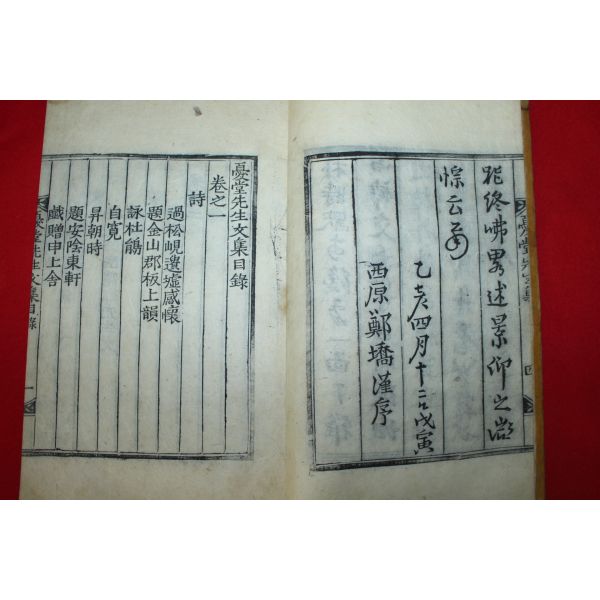 憂堂先生文集 四
能終咈畧述景仰之微
悰云爾
乙亥四月十二日戊寅
西原鄭墧謹序
憂堂先生文集目錄
卷之一
詩
過松峴邊墟感懷
題金山郡板上韻
詠杜鵑
自寬
昇朝時
題安陰東軒
戱贈申上舍
憂堂先生文集目錄 一